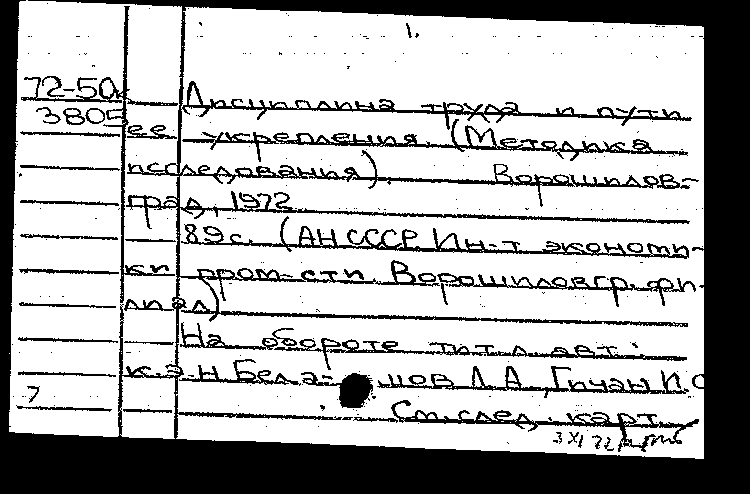 1.
72-50
3805
Дисциплина труда и пути
ее укрепления. (Методика
исследования). Ворошилов-
град, 1972.
89с. (АН СССР. Ин-т экономи-
ки пром-сти. Ворошиловгр. фи-
лиал)
На обороте тит. л. авт.:
к.э.н. Л.А., Гичан И.С
7 См. след. карт.